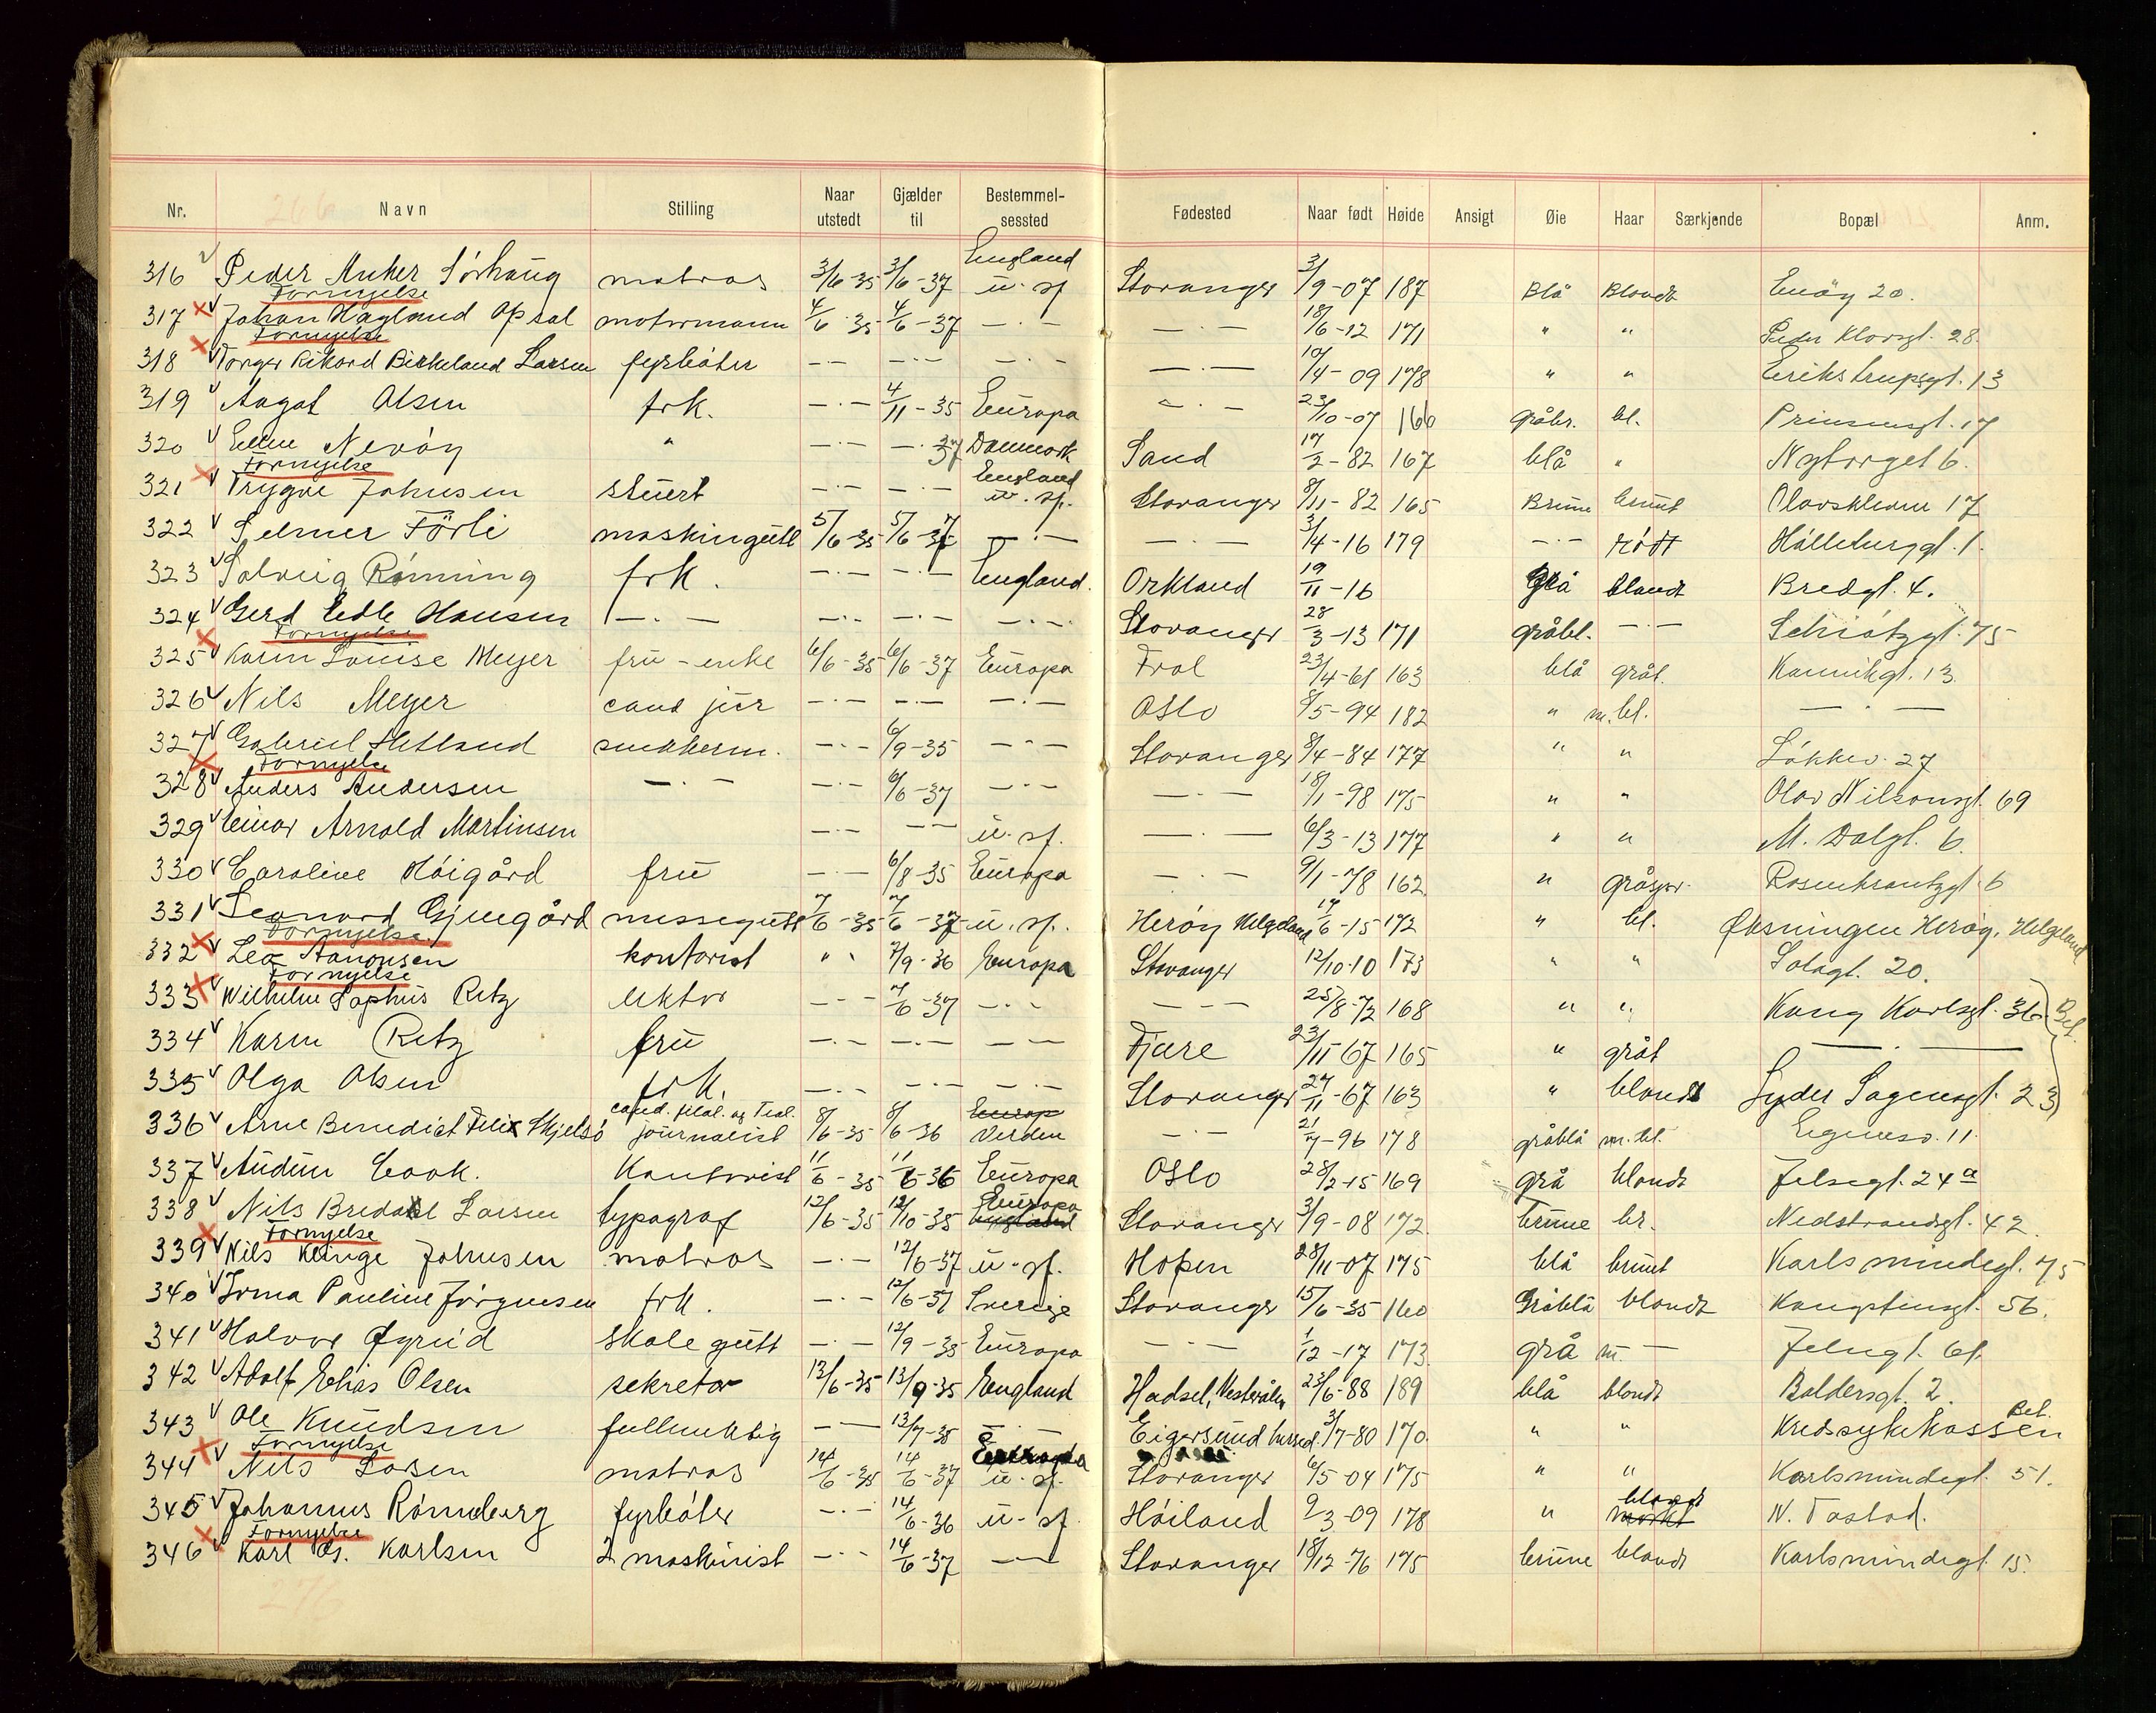 Nr. Navn Stilling Naar utstedt Gjælder til Bestemmelsessted Fødested Naar født Høide Ansigt Øie Haar Særkjende Bopæl Anm.
266
316 v Peder Anker Sörhaug matros 3/6-35 3/6-37 England u. sf Stavanger 3/9-07 187 Blå Blondt 20.
Fornyelse
317 x v Johan Hagland Opsal motormann 4/6-35 4/6-37 —.— —.— 18/6-12 171 " " Peder Klowsgt. 28.
Fornyelse
318 x v Torger Rikard Birkeland Larsen fyrböter —.— —.— —.— —.— 10/4-09 178 " " Erikstrupsgt. 13
319 v Aagot Olsen frk. —.— 4/11-35 Europa —.— 23/10-07 160 gråbr. bl. Prinsensgt. 17
320 v Nevöy " —.— —.37 Danmark Sand 17/2-82 167 blå " Nytorget 6.
Fornyelse
321 x v Trygve Johnsen stuert —.— —.— England u. sf. Stavanger 8/11-82 165 Brune brunt Olavskleven 17
322 v Selmer Förli maskingutt 5/6-35 5/6-37 —.— —.— 3/4-16 179 —.— rödt gt. 1.
323 v Solveig Rönning frk. —.— —.— England. Orkland 19/11-16 Grå blondt Bredgt. 4.
324 v Gerd Edle Hansen —.— —.— —.— —.— Stavanger 28/3-13 171 gråbl. —.— Schiötzgt. 75
Fornyelse
325 x v Karen Louise Meyer fru - enke 6/6-35 6/6-37 Europa Frol 23/4-61 163 blå gråt. Kannikgt. 13.
326 v Nils Meyer cand jur —.— —.— —.— Oslo 8/5-94 182 " m. bl. —.—
327 v Gabriel Hetland snekkerm. —.— 6/9-35 —.— Stavanger 8/4-84 177 " " Lökkev. 27
Fornyelse
328 x v Anders Andersen —.— —.— 6/6-37 —.— —.— 18/1-98 175 " " Olav Nilsonsgt. 69
329 v Einar Arnold Martinsen —.— —.— u. sf. —.— 6/3-13 177 " " M. Dalgt. 6.
330 v Caroline Höigård fru —.— 6/8-35 Europa —.— 9/1-78 162 " gråspr. Rosenkrantzgt. 6
331 v Leonard Gjengård messegutt 7/6-35 7/6-37 u. sf. Heröy Helgeland 14/6-15 172 " bl. Öksningen Heröy, Helgeland
Fornyelse
332 x v Leo Aanonsen kontorist " " 7/9-36 Europa Stavanger 12/10-10 173 " " Solagt. 20.
Fornyelse
333 x v Wilhelm Sophus Retz lektor —.— 7/6-37 —.— —.— 25/8-72 168 " " Kong Karlsgt. 36. Bet.
334 v Karen Retz fru —.— —.— —.— Fjære 23/11-67 165 " gråt —.—
335 v Olga Olsen frk. —.— —.— —.— Stavanger 27/11-67 163 " blondt Lyder Sagensgt. 23
336 v Arne Benedict Felix Skjelsö cand. filol. og Teol. journalist 8/6-35 8/6-36 Europ Verden —.— 21/7-96 178 gråblå m. bl. Eiganesv. 11.
337 v Audun Cook. Kontorist 11/6-35 11/6-36 Europa Oslo 28/2-15 169 grå blondt Jelsegt. 24a
338 v Nils Bredahl Larsen typograf 12/6-35 12/10-35 England Europa Stavanger 3/9-08 172. brune br. Nedstrandsgt. 42.
Fornyelse
339 x v Nils Klinge Johnsen matros —.— 12/6-37 u. sf. Hopen 28/11-07 175 blå brunt Karlsmindegt. 75
340 v Irma Pauline Jörgensen frk. —.— 12/6-37 Sverige Stavanger 15/6-35 160 Gråblå blondt Kongstensgt. 56.
341 v Halvor Øgrid skolegutt —.— 12/9-35 Europa —.— 1/12-17 173. grå m. — Jelsegt. 61.
342 v Adolf Elias Olsen sekretær 13/6-35 13/9-35 England Hadsel, Vesterålen 23/6-88 189 blå blondt Baldersgt. 2.
343 v Ole Knudsen fullmektig —.— 13/7-35 —.— Eigersund herred. 3/7-80 170. " " Kredssykekassen Bet.
Fornyelse
344 x v Nils Larsen matros 14/6-35 14/6-37 u. sf. Stavanger 6/5-04 175 " " Karlsmindegt. 51.
345 v Johannes Rönneberg fyrböter —.— 14/6-36 u. sf. Höiland 9/3-09 178 " mörkt blondt N. Tastad.
Fornyelse
346 x v Karl Karlsen 2 maskinist —.— 14/6-37 —.— Stavanger 18/12-76 175 brune blondt Karlsmindegt. 15.
276